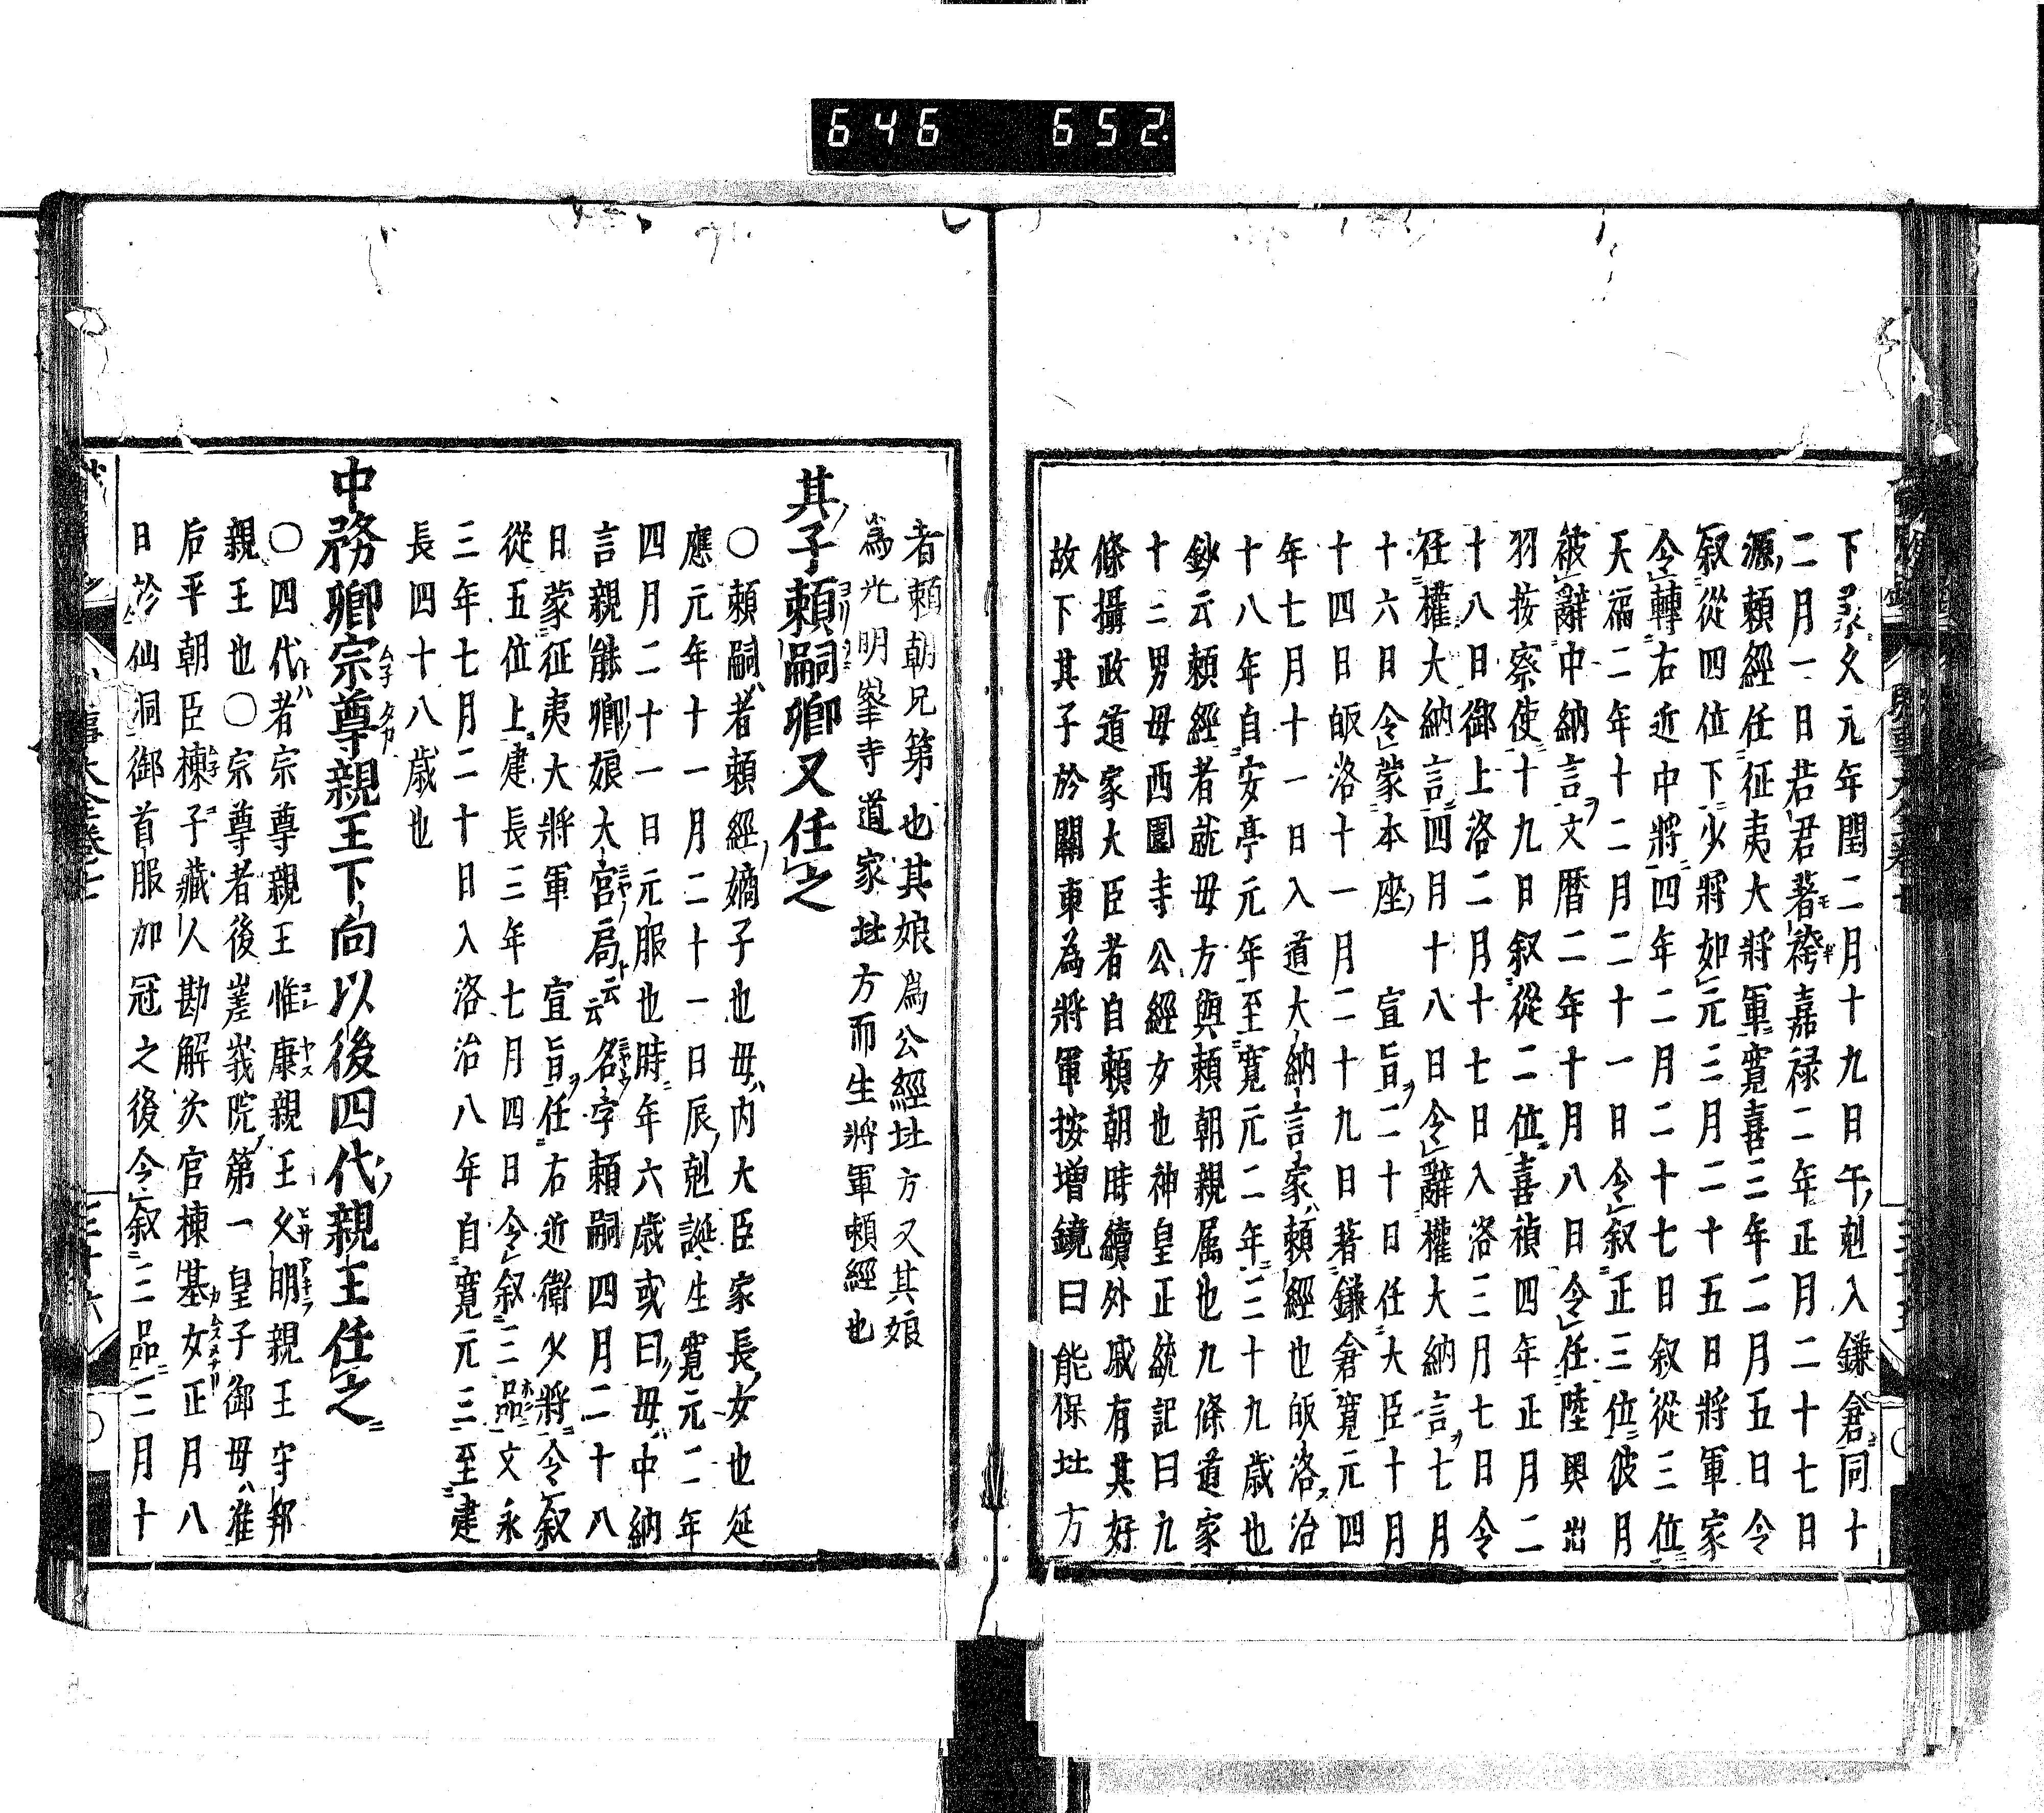 646 652.
下ヨリ承久元年閏二月十九日午ノ剋入鎌倉ニ同十
二月一日若君著袴嘉禄二年正月二十七日
源ノ頼經任征夷大將軍ニ寛喜三年二月五日令
叙從四位下ニ少將如元三月二十五日將軍家
令轉右近中將ニ四年二月二十七日叙從三位ニ
天福二年十二月二十一日令叙正三位ニ彼月
被辭中納言ヲ文暦二年十月八日令任陸奥出
羽按察使ニ十九日叙從二位ニ喜禎四年正月二
十八日御上洛二月十七日入洛三月七日令
任權大納言ニ四月十八日令辭權大納言ヲ七月
十六日令蒙本座ノ宣旨ヲ二十日任大臣ニ十月
十四日皈洛十一月二十九日著鎌倉ニ寛元四
年七月十一日入道大納言家ハ頼經也皈洛ス治
十八年自安亭元年至寛元二年ニ三十九歳也
鈔云頼經者就母方與頼朝親属也九條道家
十二男母西園寺公經女也神皇正統記曰九
條攝政道家大臣者自頼朝時續外戚有其好
故下其子於關東為將軍按增鏡曰能保北方
者頼朝兄第也其娘爲公經北方又其娘
爲光明峯寺道家北方而生將軍頼經也
其ノ子頼嗣卿又任之
〇頼嗣ハ者頼經ノ嫡子也母ハ内大臣家長ノ女也延
應元年十一月二十一日辰ノ剋誕生寛元二年
四月二十一日元服也時ニ年六歳或曰母ハ中納
言親能卿ノ娘大宮ノ局ト云云名字頼嗣四月二十八
日蒙征夷大將軍宣旨ヲ任右近衛少將ニ令叙
從五位上ニ建長三年七月四日令叙三品ニ文永
三年七月二十日入洛治八年自寛元三至建
長四十八歳也
中務卿宗尊親王下向以後四代ノ親王任之ニ
〇四代トハ者宗尊親王惟康親王久明親王守邦
親王也〇宗尊者後嵯峩院ノ第一皇子御母ハ准
后平朝臣棟子藏人勘解灰官棟基カ女正月八
日於仙洞御首服加冠之後令叙三品ニ二月十